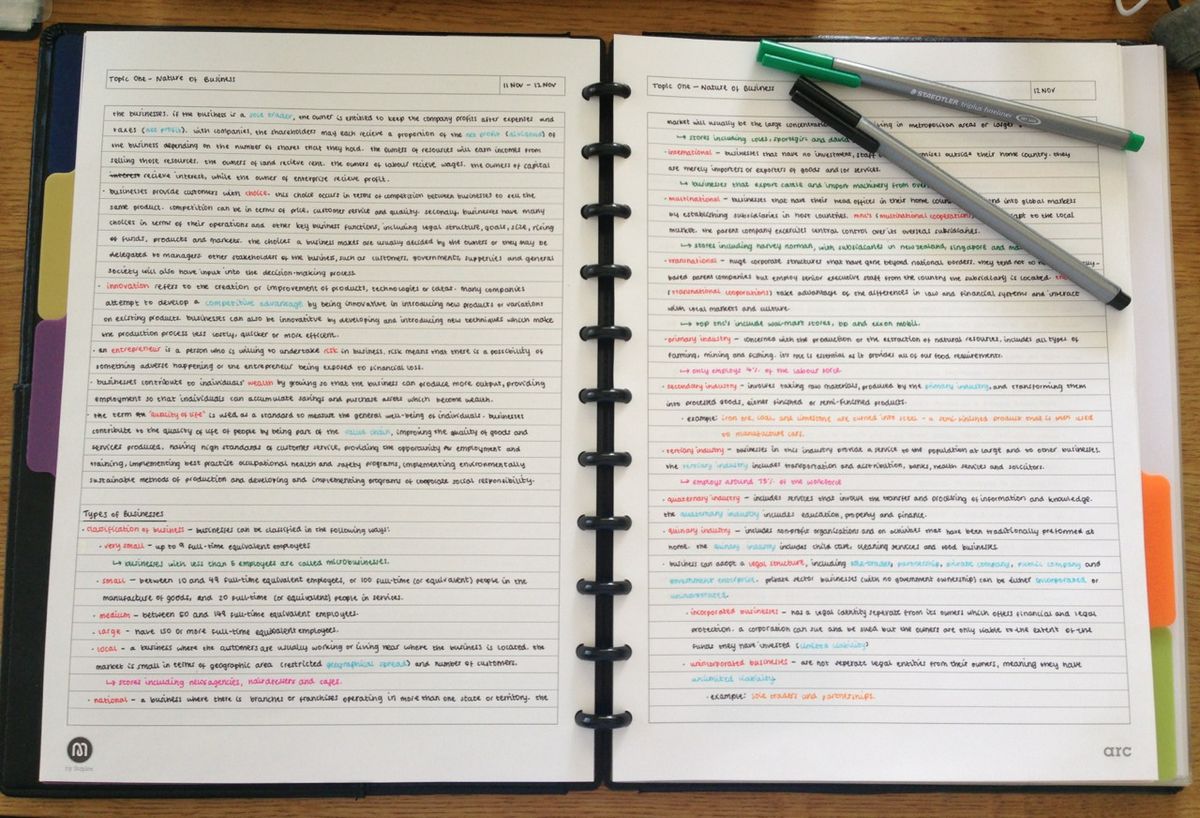 Topic One - Nature of Business
11 Nov - 12 Nov
the businesses. if the business is a sole trader, the owner is entitled to keep the company profits after expenses and
taxes (net profit). with companies, the shareholders may each recieve a proportion of the net profit (dividend) of
the business depending on the number of shares that they hold. the owners of resources will earn incomes from
selling those resources. the owners of land recieve rent. the owners of labour recieve wages. the owners of capital
recieve interest, while the owner of enterprise recieve profit.
· businesses provide customers with choice. this choice occurs in terms of competition between businesses to sell the
same product. competition can be in terms of price, customer service and quality. secondly, businesses have many
choices in terms of their operations and other key business functions, including legal structure, goals, size, mixing
of funds, products and markets. the choices a business makes are usually decided by the owners or they may be
delegated to managers. other stakeholders of the business, such as customers, governments, suppliers and general
society will also have input into the decision-making process.
· innovation refers to the creation or improvement of products, technologies or ideas. many companies
attempt to develop a competitive advantage by being innovative in introducing new products or variations
on existing products. businesses can also be innovative by developing and introducing new techniques which make
the production process less costly, quicker or more efficient.
· an entrepreneur is a person who is willing to undertake risk in business. risk means that there is a possibility of
something adverse happening or the entrepreneur being exposed to financial loss.
· businesses contribute to individuals' wealth by growing so that the business can produce more output, providing
employment so that individuals can accumulate savings and purchase assets which become wealth.
· the term "quality of life" is used as a standard to measure the general well-being of individuals. businesses
contribute to the quality of life of people by being part of the value chain, improving the quality of goods and
services produced, having high standards of customer service, providing the opportunity for employment and
training, implementing best practise occupational health and safety programs, implementing environmentally
sustainable methods of production and developing and implementing programs of corporate social responsibility.
Types of Businesses
· classification of business - businesses can be classified in the following ways:
· very small - up to 9 full-time equivalent employees
↳ businesses with less than 5 employees are called microbusinesses.
· small - between 10 and 49 full-time equivalent employees, or 100 full-time (or equivalent) people in the
manufacture of goods, and 20 full-time (or equivalent) people in services.
· medium - between 50 and 149 full-time equivalent employees.
· large - have 150 or more full-time equivalent employees.
· local - a business where the customers are usually working or living near where the business is located. the
market is small in terms of geographic area (restricted geographical spread) and number of customers.
↳ stores including newsagencies, hairdressers and cafes.
· national - a business where there is branches or franchises operating in more than one state or territory. the
M
by Staples
Topic One - Nature of Business
12 Nov
market will usually be the large living in metropolitan areas or larger
↳ stores including coles, sportsgirl and david
· international - businesses that have no investment, staff outside their home country. they
are merely importers or exporters of goods and/or services.
↳ businesses that export cattle and import machinery from
· multinational - businesses that have their head offices in their home into global markets
by establishing subsidiaries in host countries. mnc's (multinational cooperations) to the local
market. the parent company exercises central control over its overseas subsidiaries.
↳ stores including harvey norman, with subsidiaries in new zealand, singapore and
· transnational - huge corporate structures that have gone beyond national borders. they tend not to
based parent companies but employ senior executive staff from the country the subsidiary is located.
(transnational cooporations) take advantage of the differences in law and financial systems and interact
with local markets and culture.
↳ top tnc's include wal-mart stores, bp and exxon mobil.
· primary industry - concerned with the production or the extraction of natural resources. includes all types of
farming, mining and fishing. its role is essential as it provides all of our food requirements.
↳ only employs 4% of the labour force
· secondary industry - involves taking raw materials, produced by the primary industry, and transforming them
into processed goods, either finished or semi-finished products.
· example: iron ore, coal and limestone are turned into steel - a semi-finished product that is then used
to manufacture cars.
· tertiary industry - businesses in this industry provide a service to the population at large and to other businesses.
the tertiary industry includes transportation and distribution, banks, health services and solicitors.
↳ employs around 75% of the workforce
· quaternary industry - includes services that involve the transfer and processing of information and knowledge.
the quaternary industry includes education, property and finance.
· quinary industry - includes non-profit organisations and on activities that have been traditionally preformed at
home. the quinary industry includes child care, cleaning services and food businesses.
· business can adopt a legal structure, including sole-trader, partnership, private company, public company and
government enterprise. private sector businesses (with no government ownership) can be either incorporated or
unincorporated.
· incorporated businesses - has a legal identity seperate from its owners which offers financial and legal
protection. a corporation can sue and be sued but the owners are only liable to the extent of the
funds they have invested (limited liability)
· unincorporated businesses - are not seperate legal entities from their owners, meaning they have
unlimited liability.
· example: sole traders and partnerships.
arc
STAEDTLER triplus fineliner